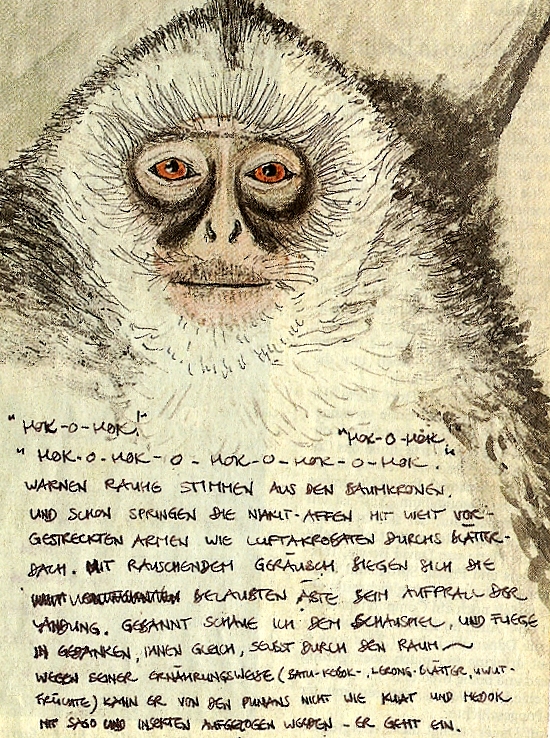 "HOK-O-HOK!" "HOK-O-HOK!"
"HOK-O-HOK-O-HOK-O-HOK-O-HOK.
WARNEN RAUHE STIMMEN AUS DEN BAUMKRONEN.
UND SCHON SPRINGEN DIE NAKIT-AFFEN MIT WEIT VOR-
GESTRECKTEN ARMEN WIE LUFTAKROBATEN DURCHS BLÄTTER-
DACH. MIT RAUSCHENDEM GERÄUSCH BIEGEN SICH DIE
BELAUBTEN ÄSTE BEIM AUFPRALL DER
LANDUNG. GEBANNT SCHAUE ICH DEM SCHAUSPIEL, UND FLIEGE
IN GEDANKEN, IHNEN GLEICH, SELBST DURCH DEN RAUM
WEGEN SEINER ERNÄHRUNGSWEISE (BATU-KEBOK-, LERONG-BLÄTTER, UWUT-
FRÜCHTE) KANN ER VON DEN PUNANS NICHT WIE KUAT UND MEDOK
MIT SAGO UND INSEKTEN AUFGEZOGEN WERDEN - ER GEHT EIN.